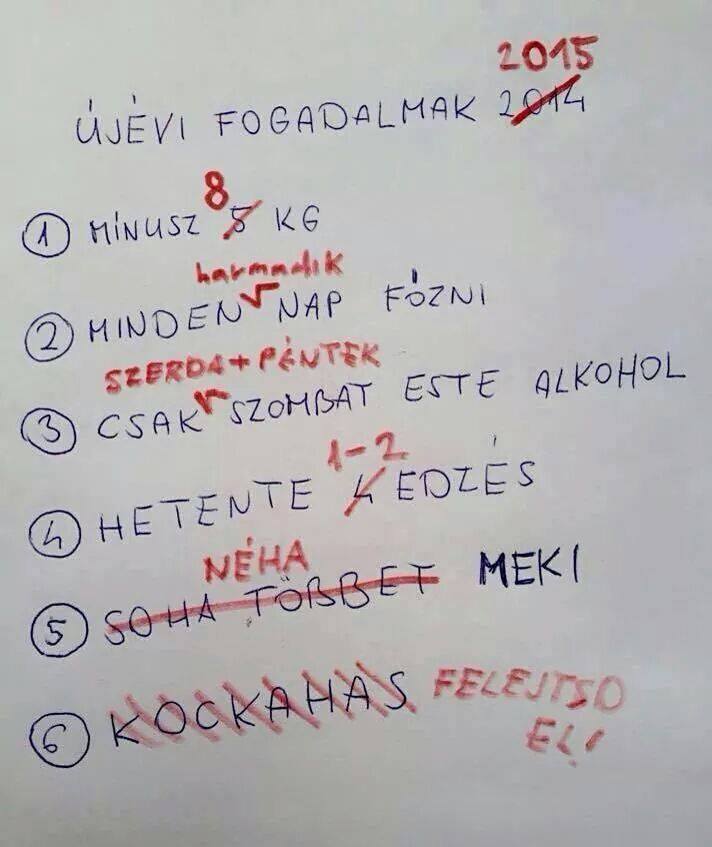 2015
ÚJÉVI FOGADALMAK 2014
8
1 MÍNUSZ 5 KG
harmadik
2 MINDEN NAP FŐZNI
SZERDA + PÉNTEK
3 CSAK SZOMBAT ESTE ALKOHOL
1-2
4 HETENTE 4 EDZÉS
NÉHA
5 SOHA TÖBBET MEKI
6 KOCKAHAS FELEJTSD
EL!